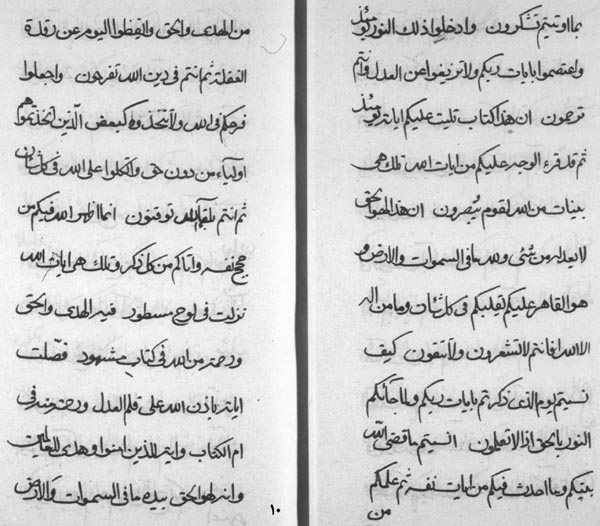 بما اوتیتم تشکرون وادخلوا ذلک النور یومئذ
واعتصموا بایات ربکم ولا تزیغوا عن العدل وانتم
ترحمون ان هذا کتاب تلیت علیکم ایاته یومئذ
ثم قد قرء الوجه علیکم من ایات الله تلک هی
بینات من الله لقوم یبصرون ان هذا لهو الحق
لا یعدله من شئ ولله ما فی السموات والارض و
هو القاهر علیکم یقلبکم فی کل شأن وما من اله
الا الله افانتم لا تشعرون ولا تتقون کیف
نسیتم یوم الذی ذکرتم بایات ربکم ولما جائکم
النور بالحق اذا لا تعلمون انسیتم ما قضی الله
بینکم وما احدث فیکم من ایات نفسه ثم علمکم
من
من الهدی والحق واتقظوا الیوم عن رقدة
الغفلة ثم انتم فی دین الله تفرحون واجعلوا
فرحکم فی الله ولا تتخذوه کبعض الذین اتخذتموهم
اولیاء من دون حق واتکلوا علی الله فی کل
ثم انتم بلقاء الله توقنون انما اظهر الله فیکم من
حجج نفسه واتاکم من کل ذکر وتلک هی ایات الله
نزلت فی لوح مسطور فیه الهدی والحق
ورحمة من الله فی کتاب مشهود فصلت
ایاته باذن الله علی قلم العدل ورحمة فی
ام الکتاب وایة للذین امنوا وهدی للعالمین
وانه لهو الحق بیده ما فی السموات والارض
۱۰